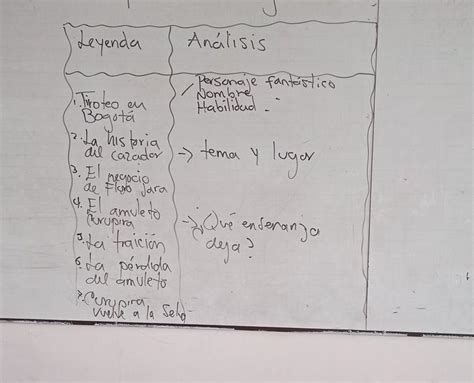 Leyenda
Análisis
1. Tiroteo en
Bogotá
2. La historia
del cazador
3. El negocio
de Flavio Jara
4. El amuleto
Curupira
5. La traición
6. La pérdida
del amuleto
7. Curupira
vuelve a la Selva
Personaje fantástico
Nombre
Habilidad
→ tema y lugar
→ ¿Qué enseñanza
deja?